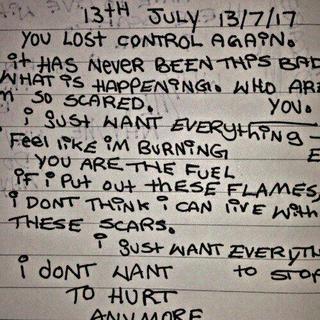 13TH JULY 13/7/17
YOU LOST CONTROL AGAIN.
it HAS NEVER BEEN THiS BAD
WHAT iS HAPPENiNG. WHO ARE
SO SCARED. YOU.
i JUST WANT EVERYTHiNG
FEEL LiKE i'M BURNiNG
YOU ARE THE FUEL
iF i PUT OUT THESE FLAMES,
i DONT THiNK i CAN LiVE WiTH
THESE SCARS.
i JUST WANT EVERYTH
i DONT WANT TO STOP
TO HURT
ANYMORE